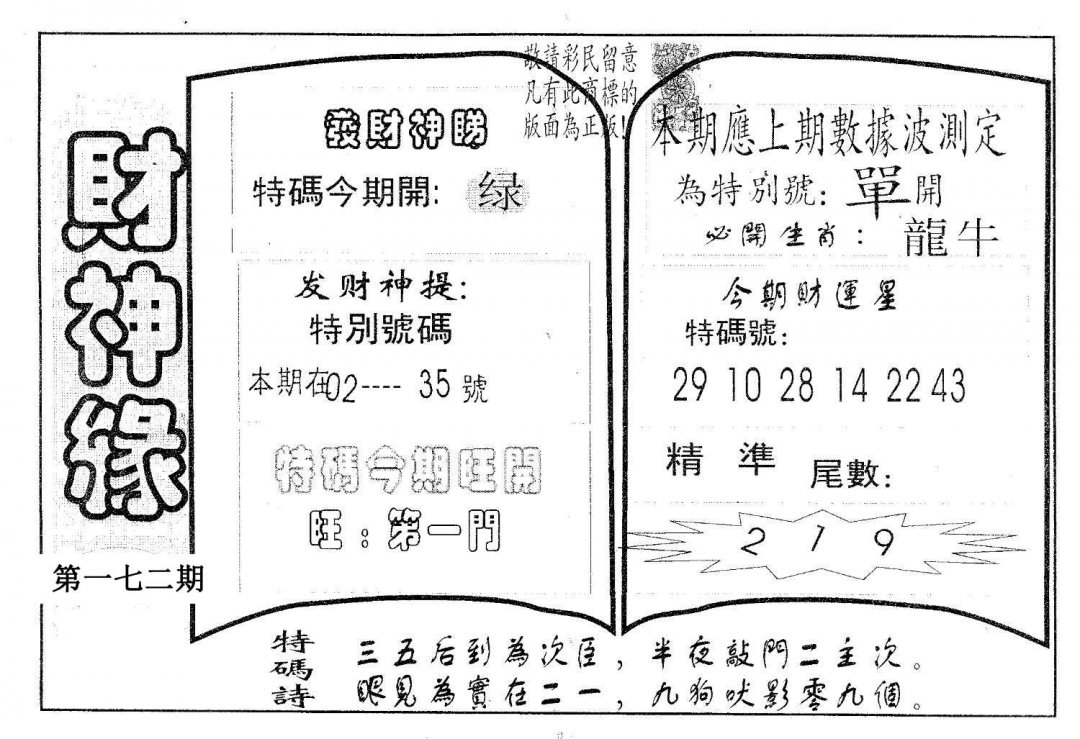 敬請彩民留意
凡有此商標的
版面為正版!
財神緣
第一七二期
發財神睇
特碼今期開: 绿
发财神提:
特別號碼
本期在02---- 35 號
特碼今期旺開
旺:第一門
本期應上期數據波測定
為特別號: 單開
必開生肖: 龍牛
今期財運星
特碼號:
29 10 28 14 22 43
精準 尾數:
2 1 9
特碼詩
三五后到為次臣,半夜敲門二主次。
眼見為實在二一,九狗吠影零九個。